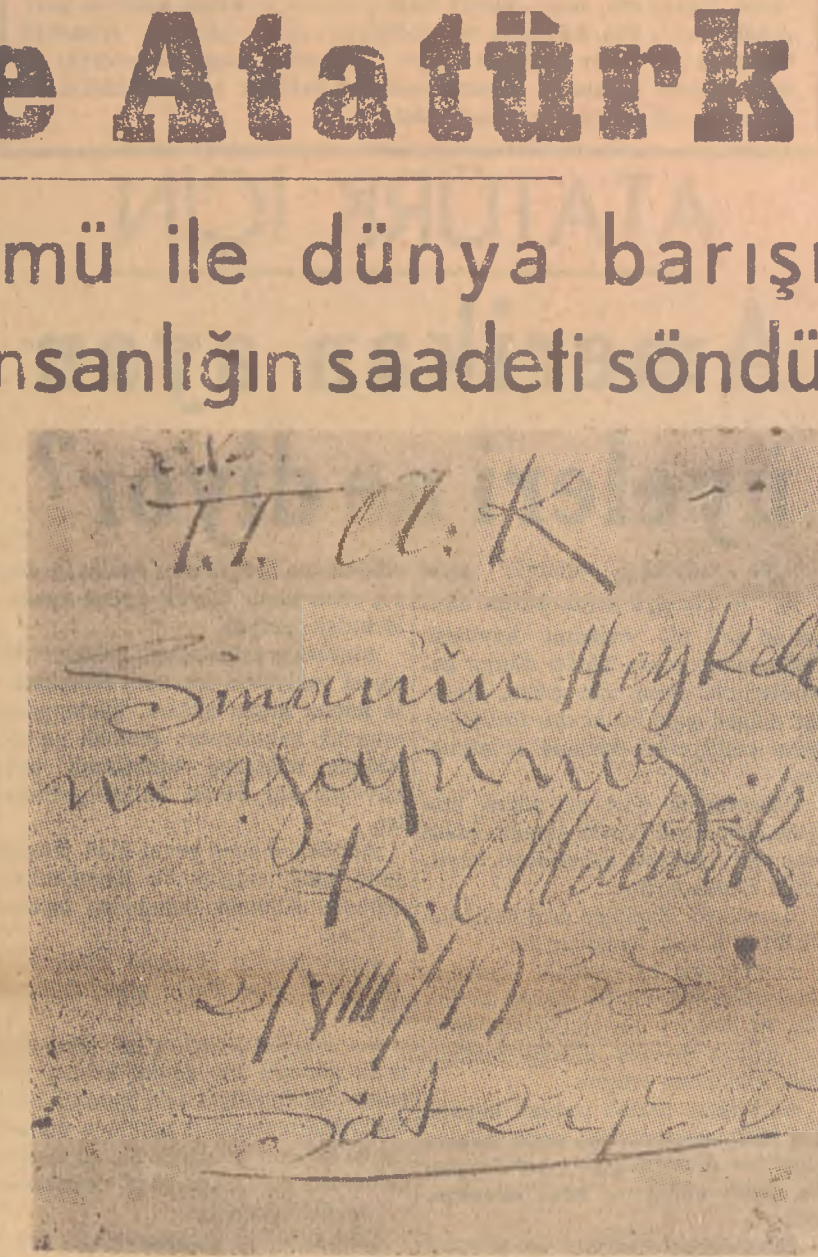 e Atatürk
mü ile dünya barışı
nsanlığın saadeti söndü
T.T. A. K
Sinanın Heykeli
ni yapınız
K. Atatürk
2/VIII/1935
Saat